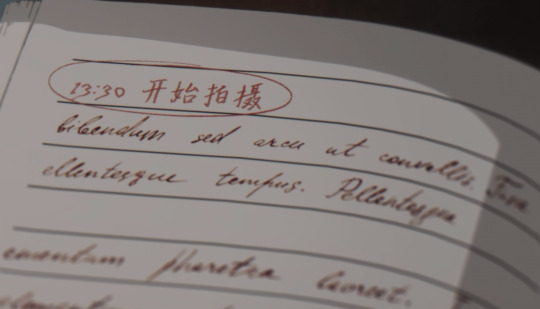 13:30 开始拍摄
bibendum sed arcu ut convallis.
ellentesque tempus. Pellentesque
ementum pharetra laoreet.